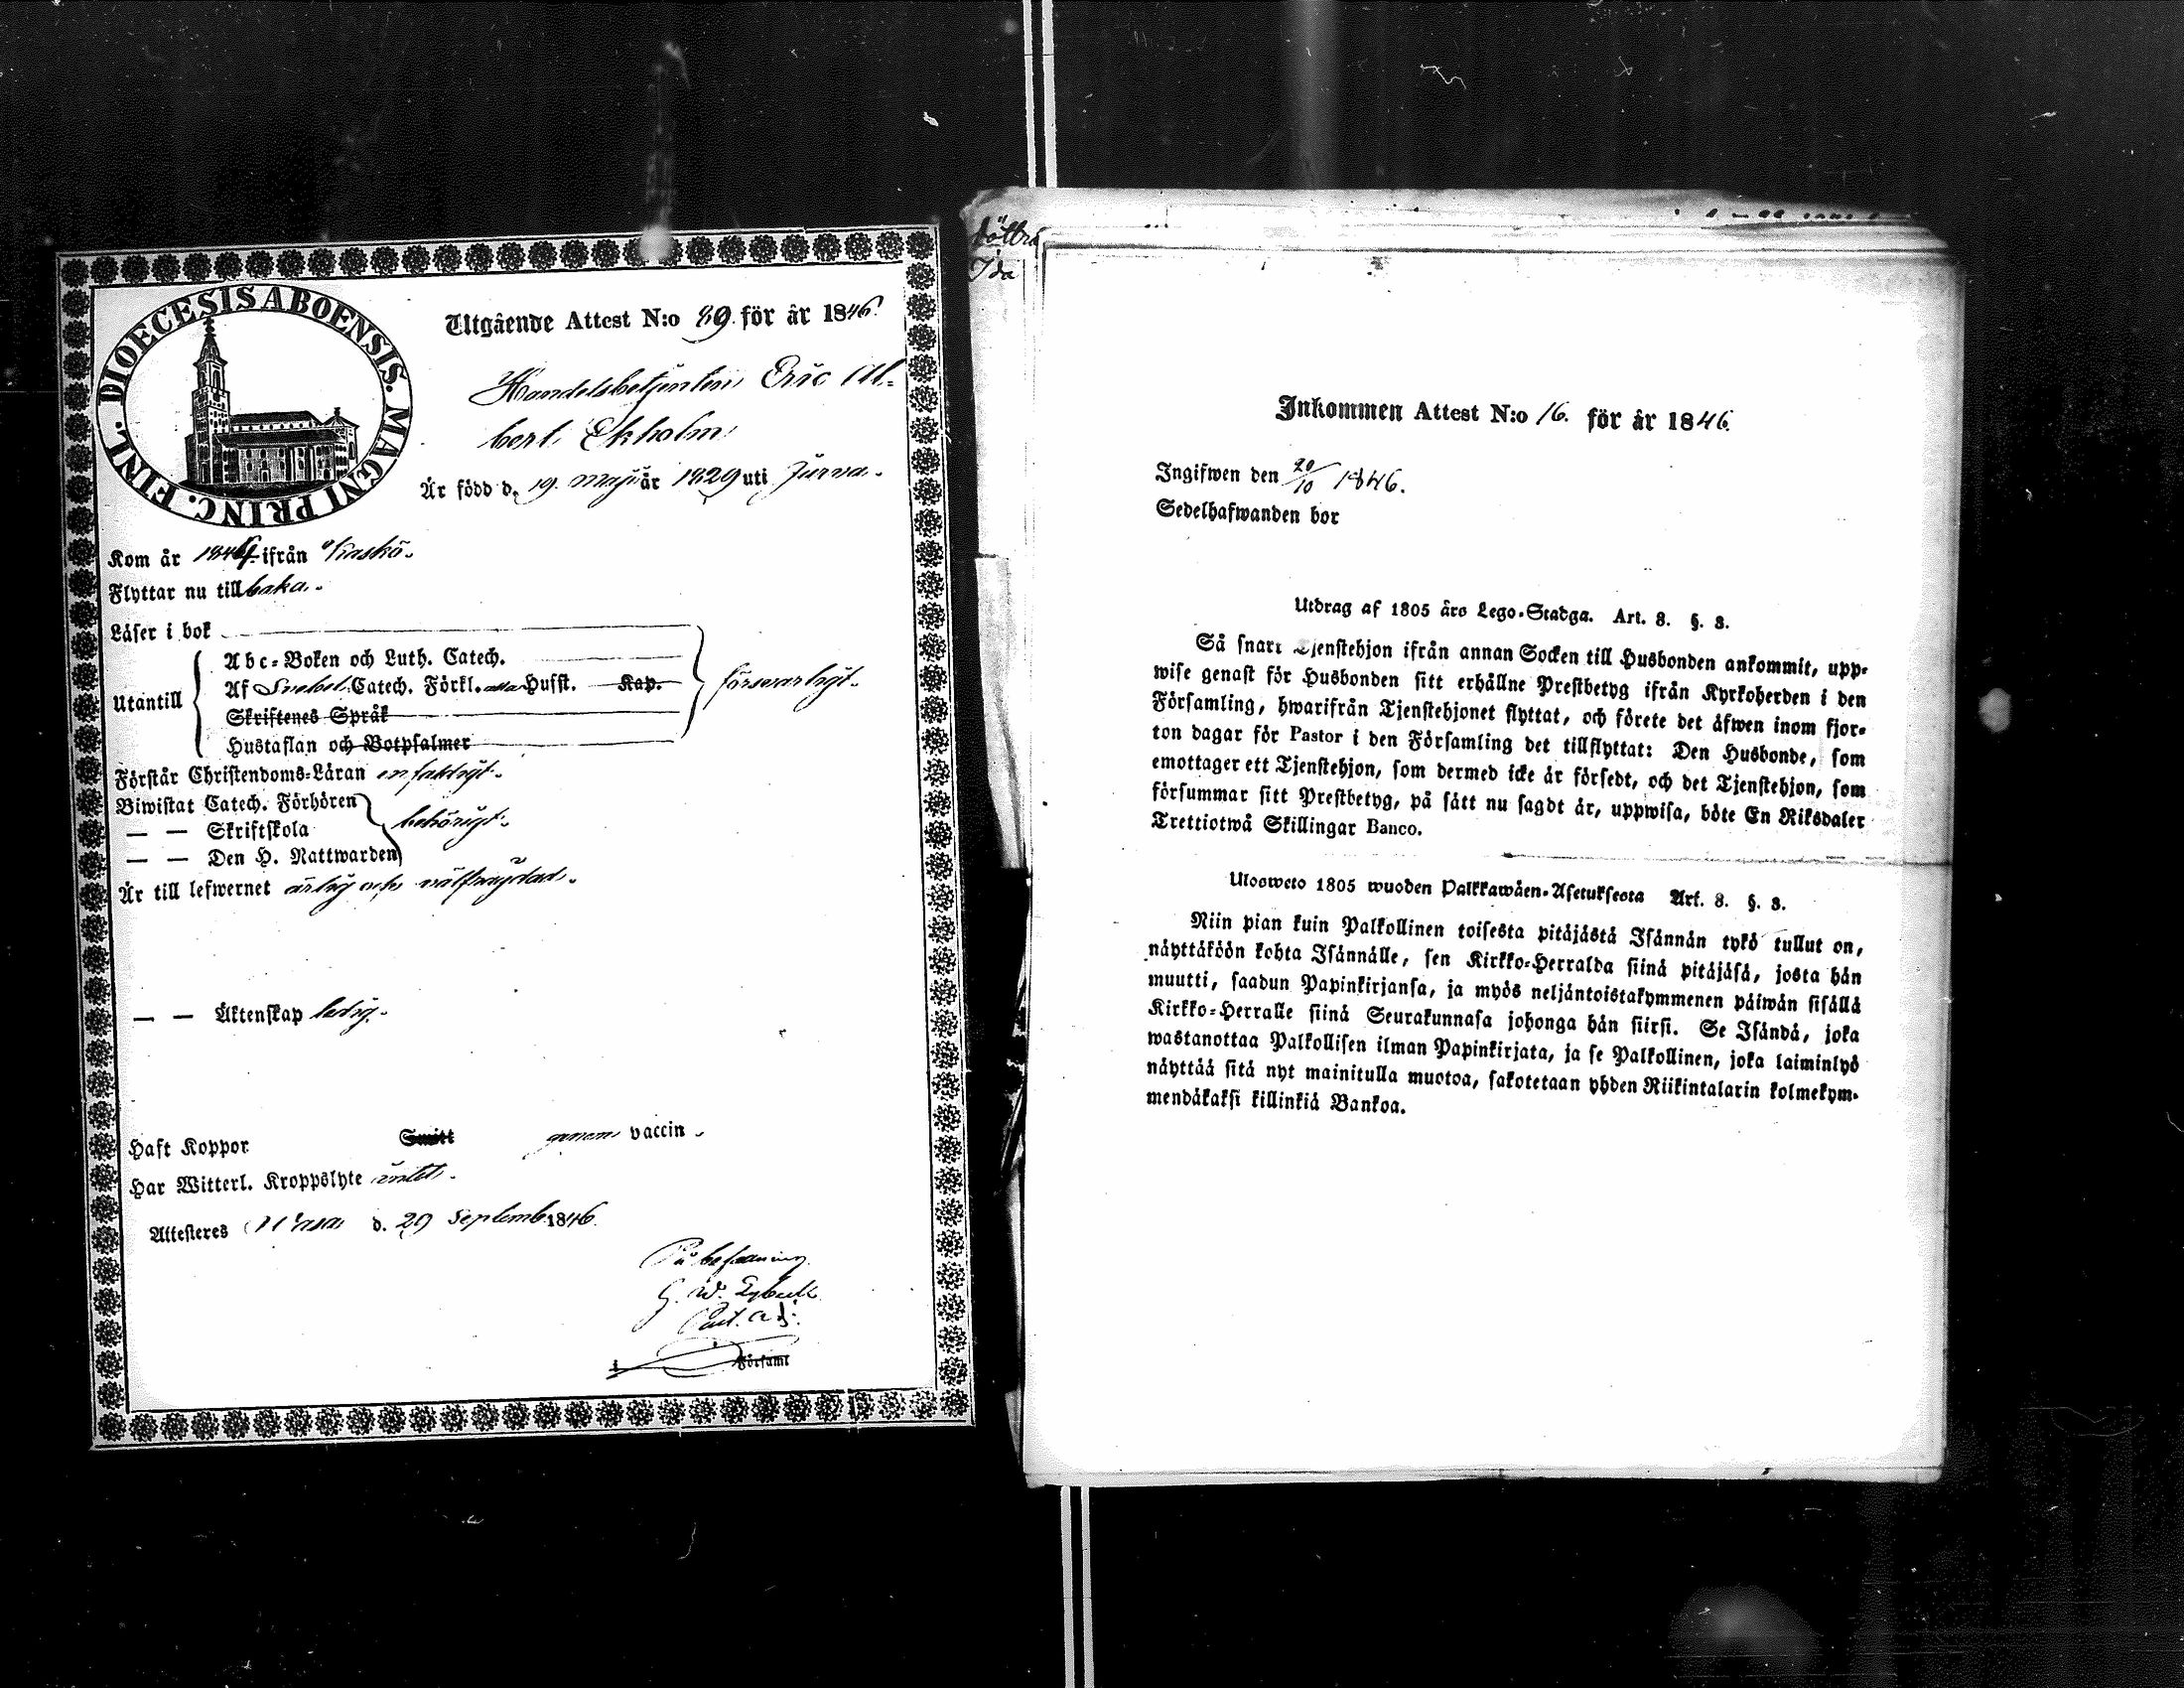 DIOECESIS ABOENSIS. MAGNI PRINC. FINL.
Utgående Attest N:o 89. för år 1846.
Handelsbetjenten Eric Al-
bert Ekholm
År född d. 19. maji år 1829 uti Jurva.
Kom år 1844 ifrån Kaskö.
Flyttar nu tillbaka.
Läser i bok
Utantill
Abc-Boken och Luth. Catech.
Af Svebel. Catech. Förkl. Husst. Kap.
Skriftenes Språk
Hustaflan och Botpsalmer
försvarligt.
Förstår Christendoms-Läran enfaldigt.
Biwistat Catech. Förhören
— — Skriftskola
— — Den H. Nattwarden
behörigt.
Är till lefwernet ärlig och välfrejdad.
— — Äktenskap ledig.
Haft Koppor Smitt genom vaccin.
Har Witterl. Kroppslyte intet.
Attesteres Wasa d. 29 Septemb. 1846.
På befallning
G. W.
Past. adj.
i Församl
döttra
Ida
Inkommen Attest N:o 16. för år 1846.
Ingifwen den 20/10 1846.
Sedelhafwanden bor
Utdrag af 1805 års Lego-Stadga. Art. 8. §. 8.
Så snart Tjenstehjon ifrån annan Socken till Husbonden ankommit, upp-
wise genast för Husbonden sitt erhållne Prestbetyg ifrån Kyrkoherden i den
Församling, hwarifrån Tjenstehjonet flyttat, och förete det äfwen inom fjor-
ton dagar för Pastor i den Församling det tillflyttat: Den Husbonde, som
emottager ett Tjenstehjon, som dermed icke är försedt, och det Tjenstehjon, som
försummar sitt Prestbetyg, på sätt nu sagdt är, uppwisa, böte En Riksdaler
Trettiotwå Skillingar Banco.
Ulosweto 1805 wuoden Palkkawäen-Asetuksesta Art. 8. §. 8.
Niin pian kuin Palkollinen toisesta pitäjästä Isännän tykö tullut on,
näyttäköön kohta Isännälle, sen Kirkko-Herralda siinä pitäjäsä, josta hän
muutti, saadun Papinkirjansa, ja myös neljäntoistakymmenen päiwän sisällä
Kirkko-Herralle siinä Seurakunnasa johonga hän siirsi. Se Isändä, joka
wastanottaa Palkollisen ilman Papinkirjata, ja se Palkollinen, joka laiminlyö
näyttää sitä nyt mainitulla muotoa, sakotetaan yhden Riikintalarin kolmekym-
mendäkaksi killinkiä Bankoa.